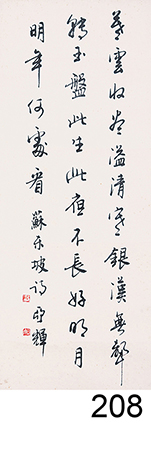 暮雲收盡溢清寒銀漢無聲
轉玉盤此生此夜不長好明月
明年何處看 蘇東坡詩
208